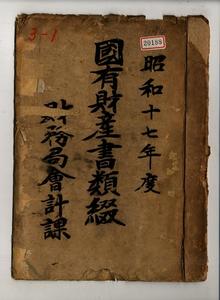 3-1
20188
昭和十七年度
國有財産書類綴
財務局會計課